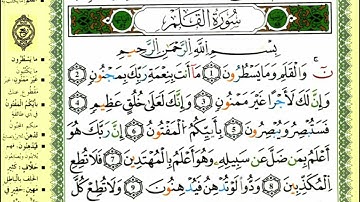 سُورَةُ القَلَمِ
بِسْمِ اللَّهِ الرَّحْمَٰنِ الرَّحِيمِ
نٓ ۚ وَالْقَلَمِ وَمَا يَسْطُرُونَ ۝١ مَا أَنتَ بِنِعْمَةِ رَبِّكَ بِمَجْنُونٍ ۝٢
وَإِنَّ لَكَ لَأَجْرًا غَيْرَ مَمْنُونٍ ۝٣ وَإِنَّكَ لَعَلَىٰ خُلُقٍ عَظِيمٍ ۝٤
فَسَتُبْصِرُ وَيُبْصِرُونَ ۝٥ بِأَييِّكُمُ الْمَفْتُونُ ۝٦ إِنَّ رَبَّكَ هُوَ
أَعْلَمُ بِمَن ضَلَّ عَن سَبِيلِهِ وَهُوَ أَعْلَمُ بِالْمُهْتَدِينَ ۝٧ فَلَا تُطِعِ
الْمُكَذِّبِينَ ۝٨ وَدُّوا لَوْ تُدْهِنُ فَيُدْهِنُونَ ۝٩ وَلَا تُطِعْ كُلَّ